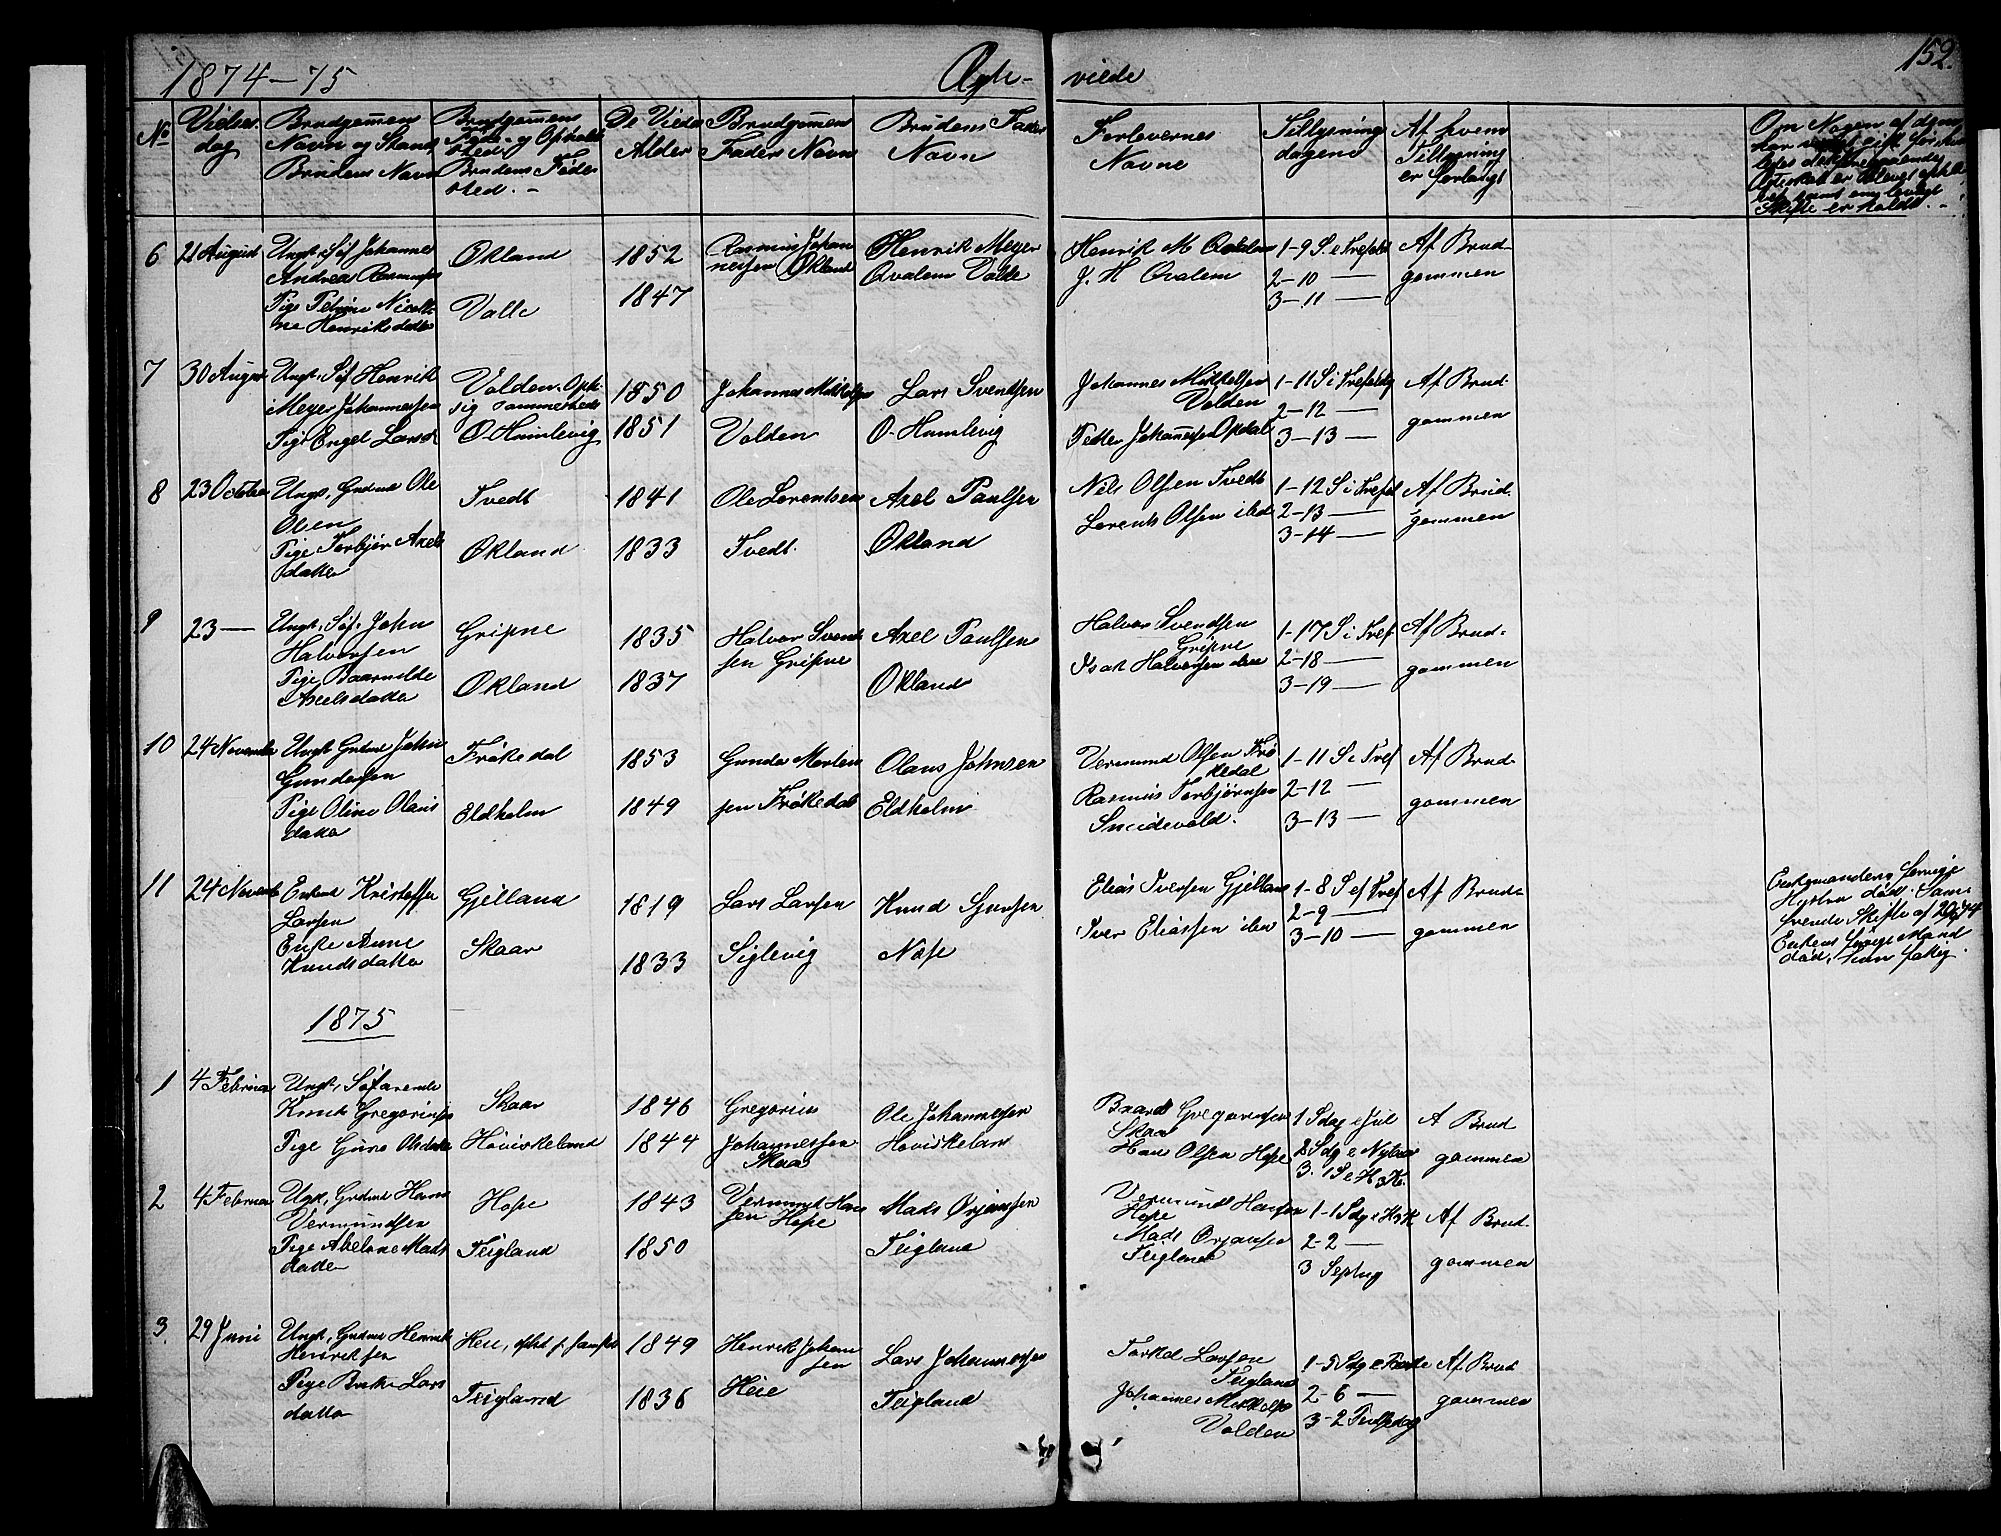 1874-75
Ægte-
viede
152.
No
Vielses
dag
Brudgommens
Navn og Stand
Brudens Navn
Brudgommens
Føde- og Opholds
sted
Brudens Føde
sted. -
De Viedes
Alder
Brudgommens
Fader Navn
Brudens Faders
Navn
Forlovernes
Navne
Tillysnings
dagene
Af hvem
Tillysning
er forlangt
6
21 August
Ungk. Søf. Johannes
Andreas Rasmussen
Pige Petrine Nicoli
ne Henriksdatter
Økland
Valle
1852
1847
Rasmus Johan
nesen Økland
Henrik Meyer
Qvalem Valle
Henrik M Qvalem
J. H Qvalem
1-9 S. e Trefold
2-10 -
3-11 -
Af Brud-
gommen
7
30 August
Ungk. Søf. Henrik
Meyer Johannessen
Pige Engel Larsd
Valden. Oph.
sig sammesteds
O. Humlevig
1850
1851
Johannes Mikkelsen
Valden
Lars Svendsen
O. Humlevig
Johannes Mikkelsen
Valden
Peder Johannessen Opdal
1-11 S i Trefoldg
2-12 -
3-13 -
Af Brud-
gommen
8
23 October
Ungk. Grdm Ole
Olsen
Pige Torbjør Axels
datter
Tvedt
Økland
1841
1833
Ole Lorentsen
Tvedt.
Axel Paulsen
Økland
Nils Olsen Tvedt
Lorents Olsen ibd
1-12 S i Trefol
2-13 -
3-14 -
Af Brud-
gommen
9
23 -
Ungk. Søf. John
Halvorsen
Axelsdatter
Gripne
Økland
1835
1837
Halvor Svend
sen Gripne
Axel Paulsen
Økland
Halvor Svendsen
Gripne
Isak Halvorsen ibd
1-17 S i Tref
2-18 -
3-19 -
Af Brud-
gommen
10
24 November
Ungk Grdm John
Gundersen
Pige Oline Olaus
datter
Frøkedal
Eldholm
1853
1849
Gunder Morten
sen Frøkedal
Olaus Johnsen
Eldholm
Vermund Olsen Frø
kedal
Rasmus Torbjørnsen
1-11 S i Tref
2-12 -
3-13 -
Af Brud-
gommen
11
24 November
Enkem Kristoffer
Larsen
Enke Anne
Knudsdatter
Gjelland
Skaar
1819
1833
Lars Larsen
Siglevig
Knud Sjursen
Næse
Elias Iversen Gjelland
Iver Eliassen ibd
1-8 S ef Tref
2-9 -
3-10 -
Af Brud-
gommen
Enkemandens forrige
Hustru død.
Enkens forrige Mand
død,
1875
1
4 Februar
Ungk. Søfarende
Knud Gregoriussen
Pige Guro Olsdatter
Skaar
Haviskeland
1846
1844
Gregorius
Johannessen
Skaar
Ole Johannessen
Haviskeland
Baard Gregoriussen
Skaar
Hans Olsen Hope
1 Sdag e Jul
2 Sdg e Nytaar
3. 1 S e H 3 K.
A Brud
gommen
2
4 Februar
Ugk. Grdm Hans
Vermundsen
Pige Abelone Mads
datter
Hope
Teigland
1843
1850
Vermund Han
sen Hope
Mads Ørjansen
Teigland
Vermund Hansen
Hope
Mads Ørjansen
Teigland
1-1 Sdg e H3K
2-2 -
3 Septug
Af Brud-
gommen
3.
29 Juni
Ungk. Grdm Henrik
Henriksen
Pige Birthe Lars
datter
Teigland
1849
1836
Henrik Johan
sen
Heie
Lars Johannessen
Teigland
Torkel Larsen
Teigland
Johannes Mikkelsen
Valden
1-5 Sdg e Paaske
2-6 -
3-2 Pintsedag
Af Brud
gommen